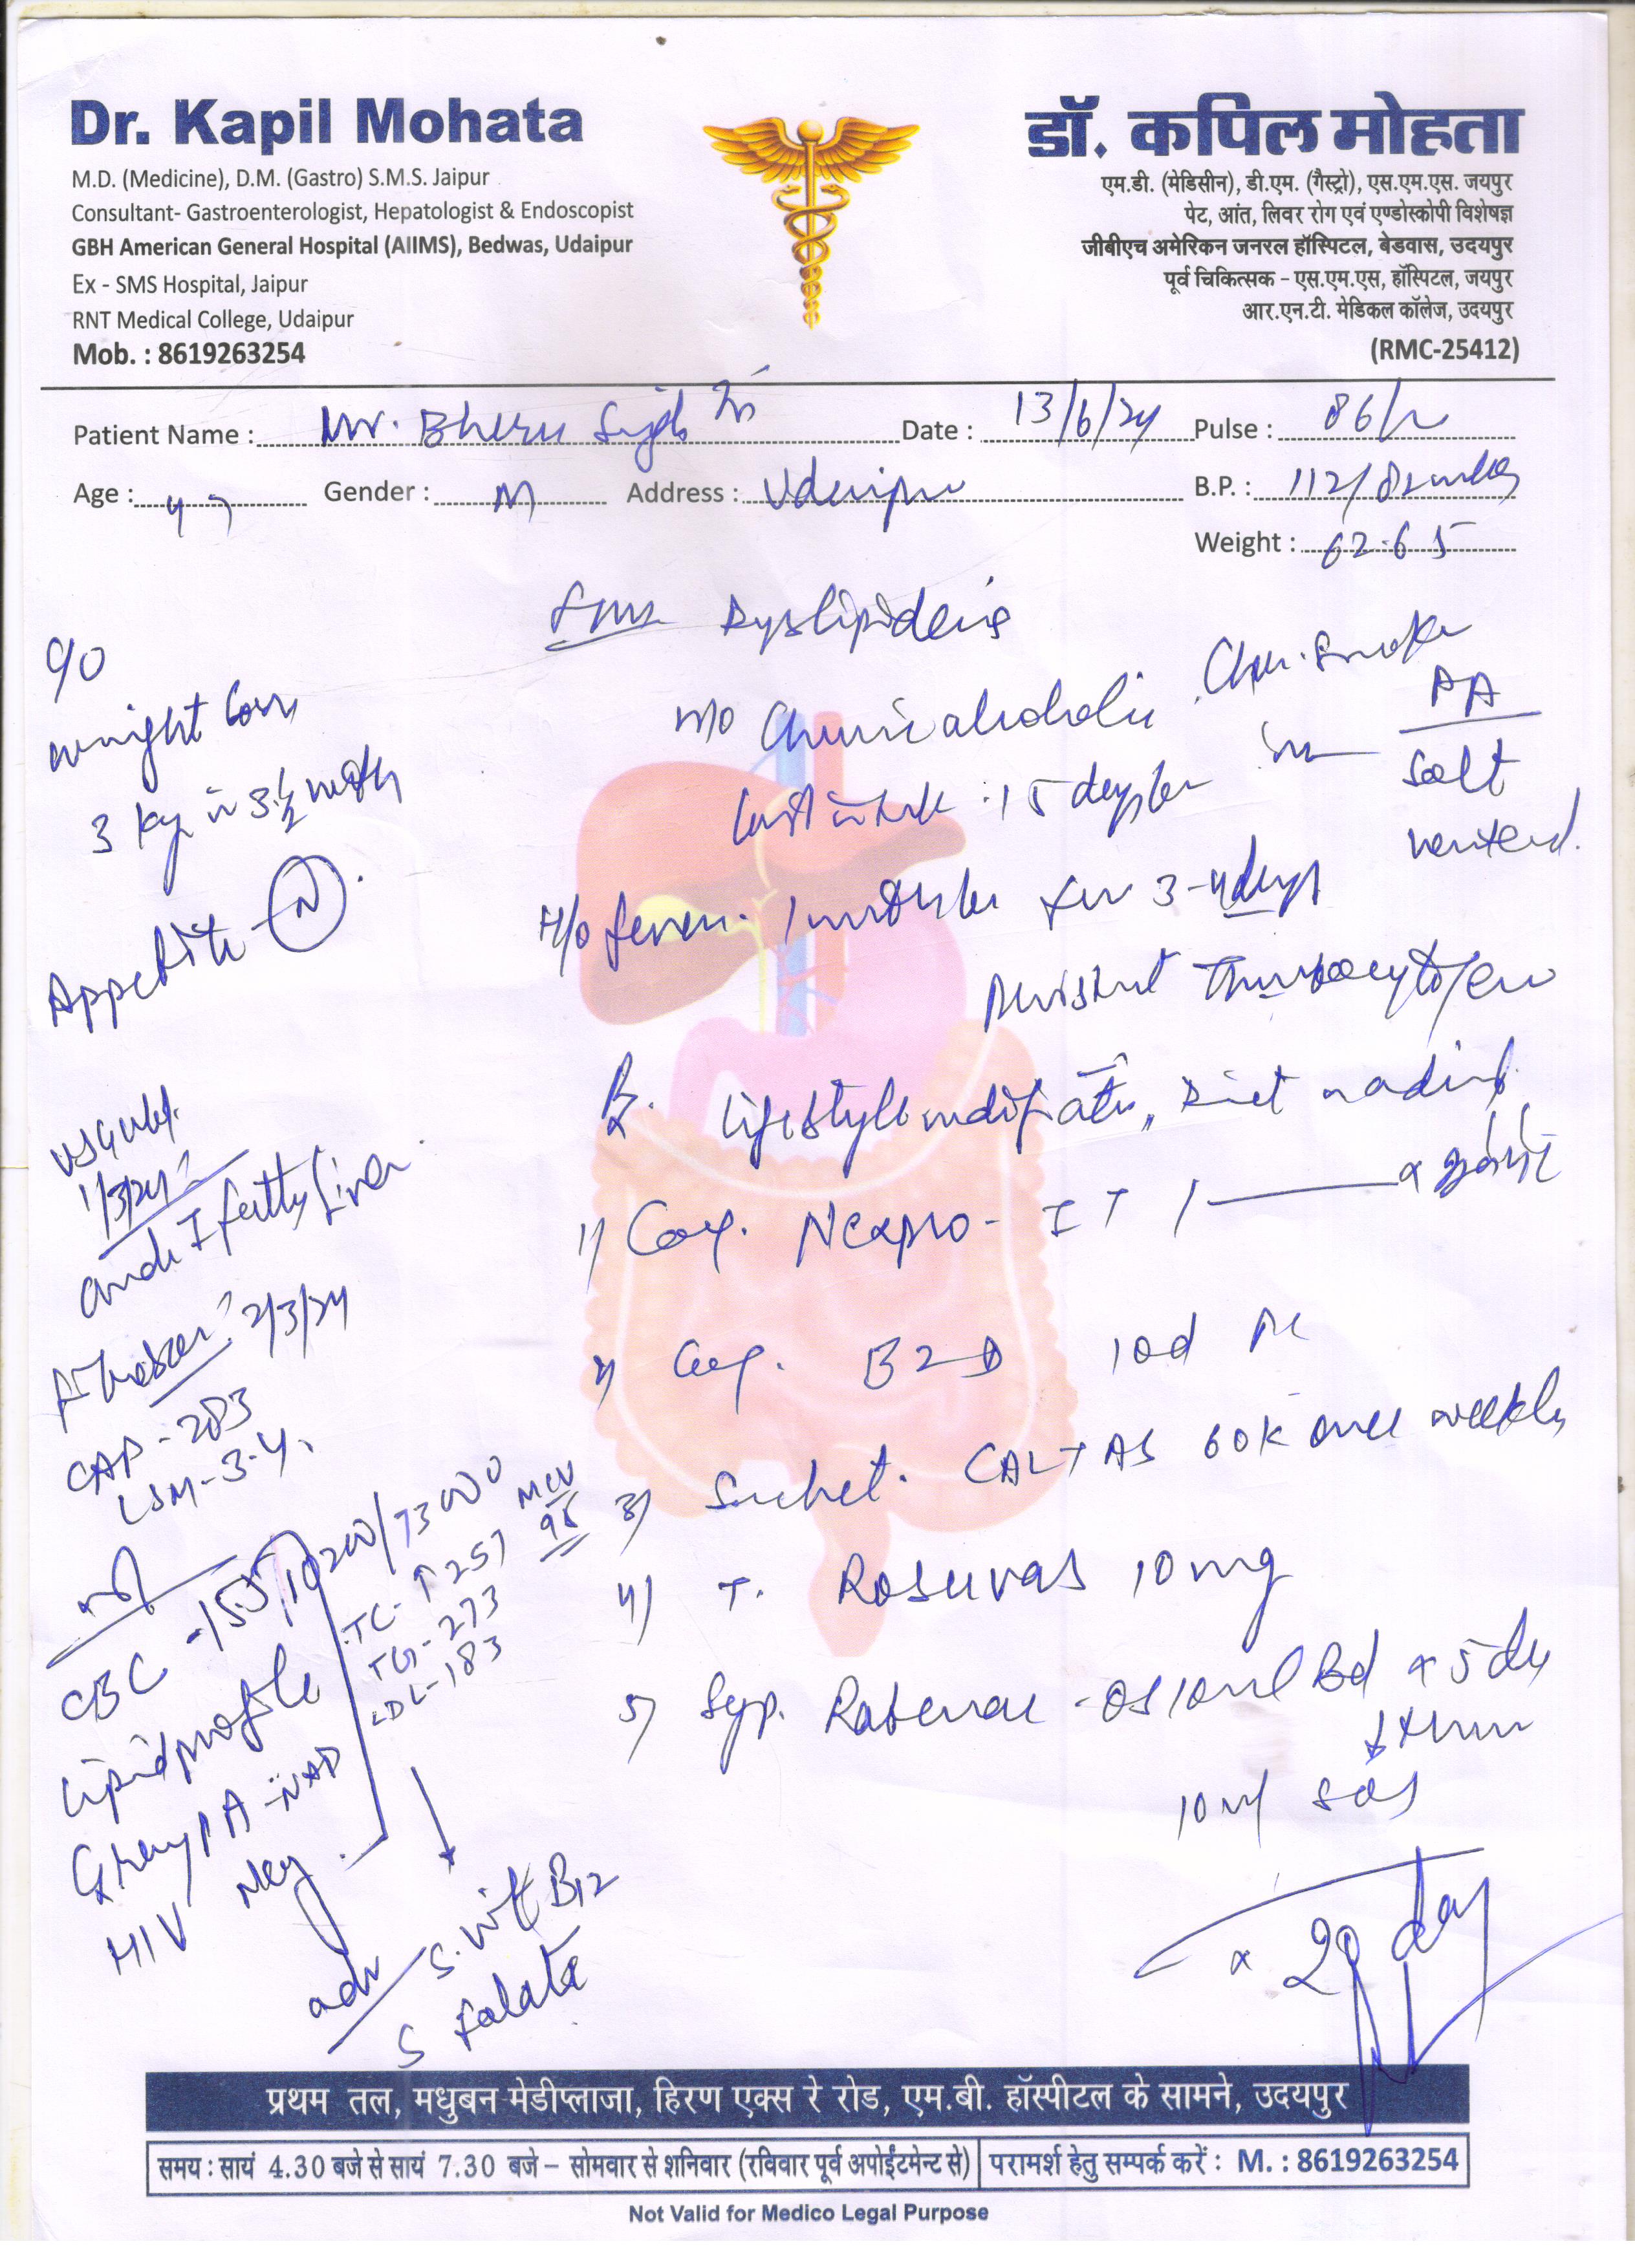 Dr. Kapil Mohata
M.D. (Medicine), D.M. (Gastro) S.M.S. Jaipur
Consultant- Gastroenterologist, Hepatologist & Endoscopist
GBH American General Hospital (AIIMS), Bedwas, Udaipur
Ex - SMS Hospital, Jaipur
RNT Medical College, Udaipur
Mob. : 8619263254
डॉ. कपिल मोहता
एम.डी. (मेडिसीन), डी.एम. (गैस्ट्रो), एस.एम.एस. जयपुर
पेट, आंत, लिवर रोग एवं एण्डोस्कोपी विशेषज्ञ
जीबीएच अमेरिकन जनरल हॉस्पिटल, बेडवास, उदयपुर
पूर्व चिकित्सक - एस.एम.एस, हॉस्पिटल, जयपुर
आर.एन.टी. मेडिकल कॉलेज, उदयपुर
(RMC-25412)
Patient Name : Mr. Bheru Singh Date : 13/6/24 Pulse : 86/
Age : 47 Gender : M Address : Udaipur B.P. : 112/82
Weight : 62.65
Dyslipidemia
c/o
weight loss
3 kg in 3½ month
Appetite - N
Chronic alcoholic
Chr. Smoker
PA
Last intake : 15 days
Soft
H/o fever. 1 month for 3-4 days
Persistent Thrombocytopenia
Rx. Lifestyle modification, Diet
1) Cap. Nexpro - IT 1
2) Cap. B2D 1od
3) Sachet. CALTAS 60K once weekly
4) T. Rosuvas 10 mg
5) Syp. Rabenac - OS 10ml Bd x 5 day
10 ml sos
x 20 day
1/3/24
Grade I fatty liver
Fibroscan 2/3/24
CAP - 283
LSM - 3.4
CBC - 15.5/10200/73000 MCV 98
TC - ↑ 257
TG - 273
LDL - 183
Lipid profile
HIV Neg
adv
S. Vit B12
S Folate
प्रथम तल, मधुबन मेडीप्लाजा, हिरण एक्स रे रोड, एम.बी. हॉस्पीटल के सामने, उदयपुर
समय : सायं 4.30 बजे से सायं 7.30 बजे – सोमवार से शनिवार (रविवार पूर्व अपोईंटमेन्ट से) परामर्श हेतु सम्पर्क करें : M. : 8619263254
Not Valid for Medico Legal Purpose